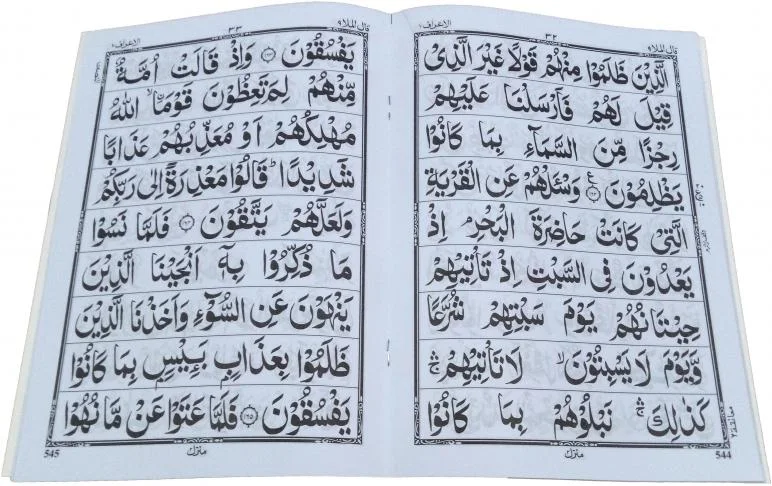 قال الملا ٩
٣٢
الاعراف ٧
الَّذِيْنَ ظَلَمُوْا مِنْهُمْ قَوْلًا غَيْرَ الَّذِىْ
قِيْلَ لَهُمْ فَاَرْسَلْنَا عَلَيْهِمْ
رِجْزًا مِّنَ السَّمَآءِ بِمَا كَانُوْا
يَظْلِمُوْنَ ۝ وَسْئَلْهُمْ عَنِ الْقَرْيَةِ
الَّتِىْ كَانَتْ حَاضِرَةَ الْبَحْرِ اِذْ
يَعْدُوْنَ فِى السَّبْتِ اِذْ تَاْتِيْهِمْ
حِيْتَانُهُمْ يَوْمَ سَبْتِهِمْ شُرَّعًا
وَّيَوْمَ لَا يَسْبِتُوْنَ ۙ لَا تَاْتِيْهِمْ ۛۚ
كَذٰلِكَ ۛۚ نَبْلُوْهُمْ بِمَا كَانُوْا
معانقة ٢
منزل
544
قال الملا ٩
٣٣
الاعراف ٧
يَفْسُقُوْنَ ۝ وَاِذْ قَالَتْ اُمَّةٌ
مِّنْهُمْ لِمَ تَعِظُوْنَ قَوْمًا ۙ اللّٰهُ
مُهْلِكُهُمْ اَوْ مُعَذِّبُهُمْ عَذَابًا
شَدِيْدًا ؕ قَالُوْا مَعْذِرَةً اِلٰى رَبِّكُمْ
وَلَعَلَّهُمْ يَتَّقُوْنَ ۝ فَلَمَّا نَسُوْا
مَا ذُكِّرُوْا بِهٖٓ اَنْجَيْنَا الَّذِيْنَ
يَنْهَوْنَ عَنِ السُّوْٓءِ وَاَخَذْنَا الَّذِيْنَ
ظَلَمُوْا بِعَذَابٍۭ بَئِيْسٍۭ بِمَا كَانُوْا
يَفْسُقُوْنَ ۝ فَلَمَّا عَتَوْا عَنْ مَّا نُهُوْا
منزل
545